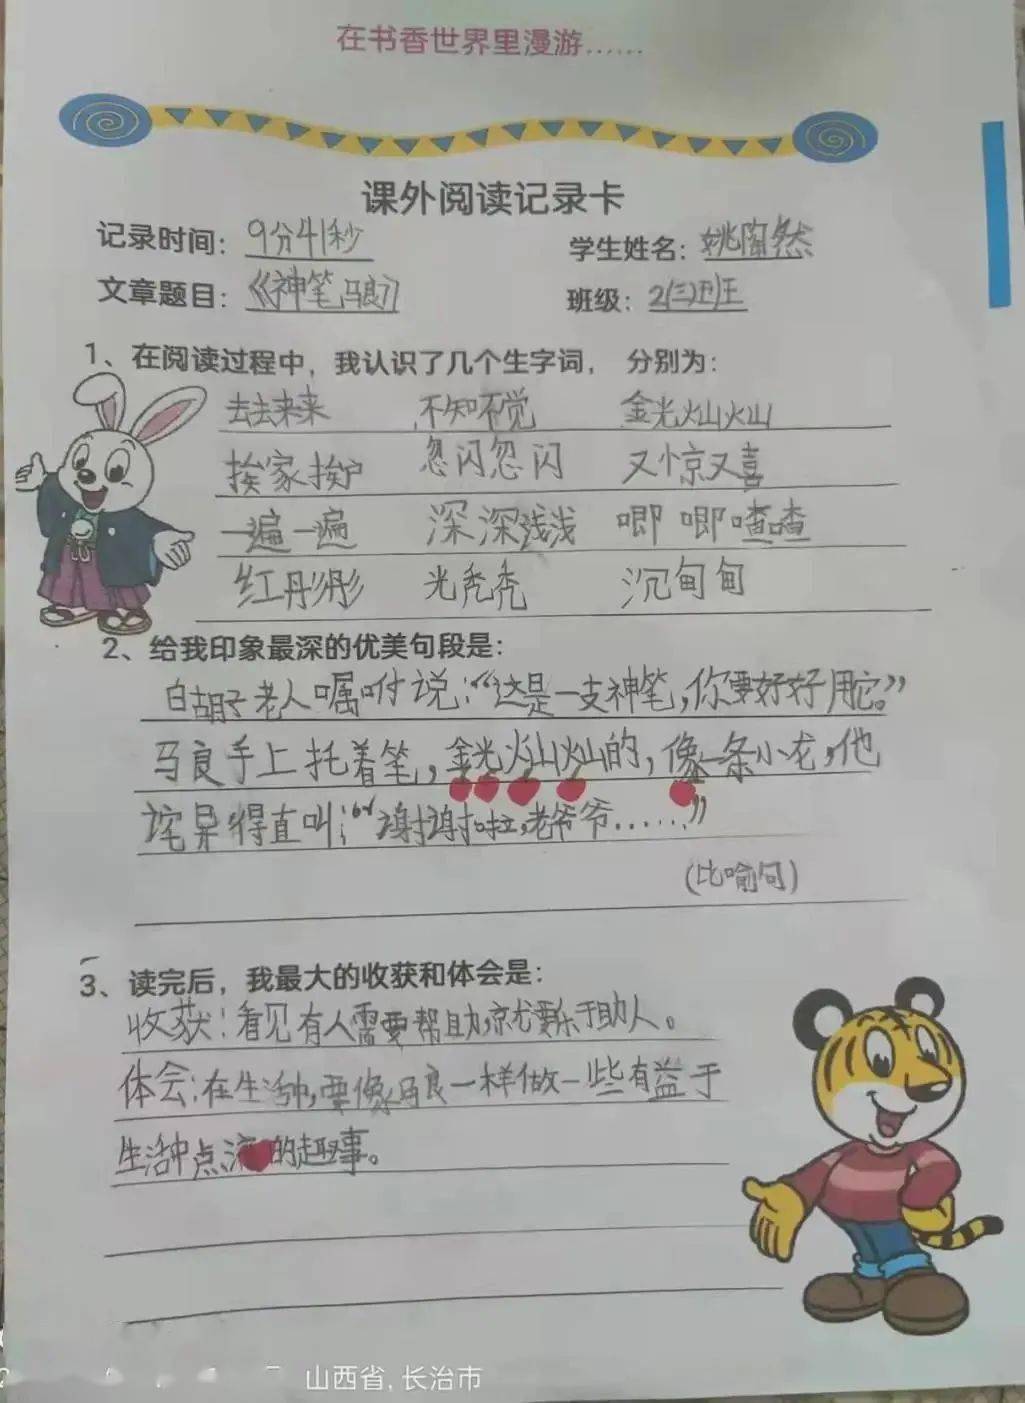 在书香世界里漫游......
课外阅读记录卡
记录时间：9分41秒 学生姓名：姚陶然
文章题目：《神笔马良》 班级：2(三)班
1、在阅读过程中，我认识了几个生字词， 分别为：
去去来来 不知不觉 金光灿灿
挨家挨户 忽闪忽闪 又惊又喜
一遍一遍 深深浅浅 唧唧喳喳
红彤彤 光秃秃 沉甸甸
2、给我印象最深的优美句段是：
白胡子老人嘱咐说：“这是一支神笔，你要好好用它。”
马良手上托着笔，金光灿灿的，像一条小龙，他
诧异得直叫：“谢谢啦，老爷爷......”
(比喻句)
3、读完后，我最大的收获和体会是：
收获：看见有人需要帮助，就要乐于助人。
体会：在生活中，要像马良一样做一些有益于
生活中点 的趣事。
山西省, 长治市